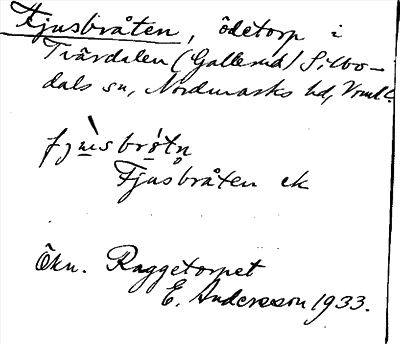 Fjusbråten, ödetorp i
Tvärdalen (Gallerud) Silbo-
dals sn, Nordmarks hd, Vrml.
fjùsbrotn
Fjusbråten ek
Ökn. Raggetorpet
E. Andersson 1933.